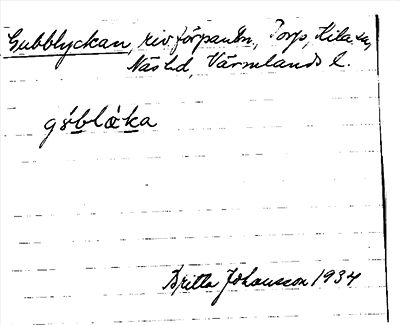 Gubblyckan, riv förpanten, Torp, Kila sn,
Näs hd, Värmlands l.
gɞ́blɷ̀ka
Britta Johansson 1934